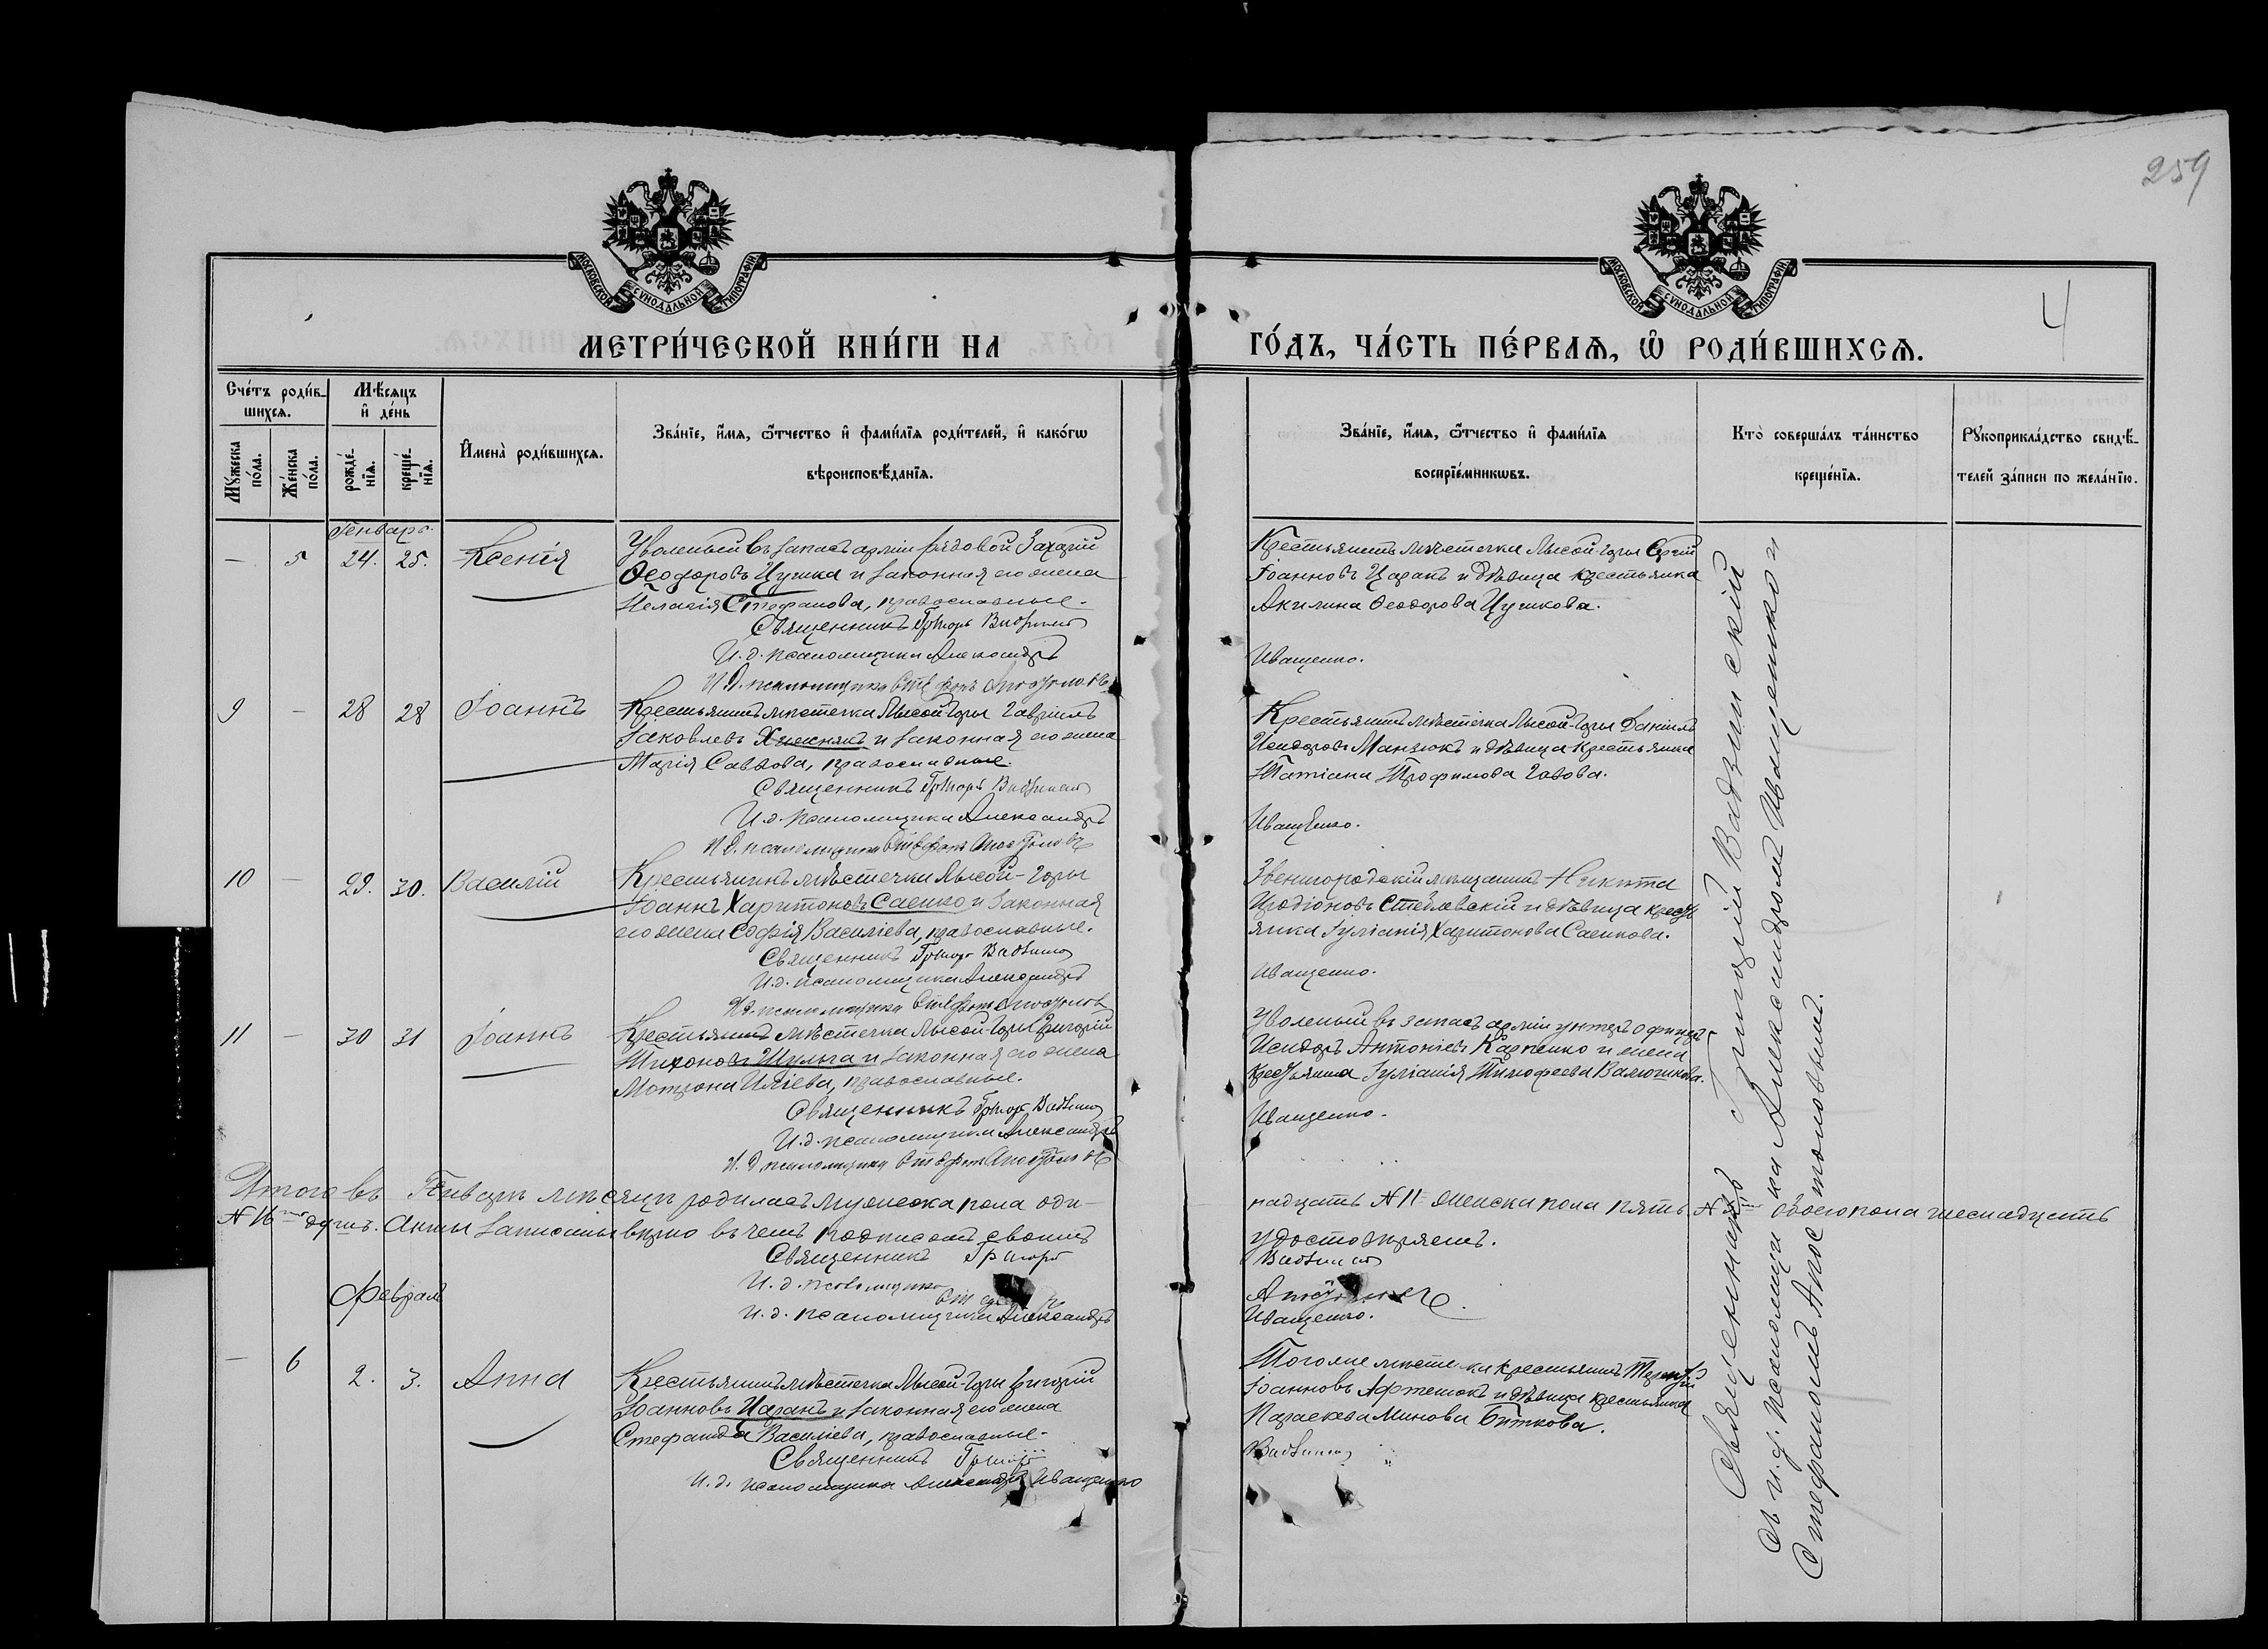 259
4
МОСКОВСКОЙ СѴНОДАЛЬНОЙ ТИПОГРАФІИ
МОСКОВСКОЙ СѴНОДАЛЬНОЙ ТИПОГРАФІИ
МЕТРИ́ЧЕСКОЙ КНИ́ГИ НА ГО́ДЪ, ЧА́СТЬ ПЕ́РВАѦ, Ѽ РОДИ́ВШИХСѦ.
Сче́тъ роди́в-
шихсѧ.
Мꙋ́жеска по́ла.
Же́нска по́ла.
Мѣ́сѧцъ
и҆ де́нь
рожде́-нїѧ.
креще́-нїѧ.
И҆мена̀ роди́вшихсѧ.
Зва́нїе, и҆́мѧ, ѻ҆́тчество и҆ фами́лїѧ роди́телей, и҆ како́гѡ
вѣроисповѣ́данїѧ.
Зва́нїе, и҆́мѧ, ѻ҆́тчество и҆ фами́лїѧ
воспрїе́мникѡвъ.
Кто̀ соверша́лъ та́инство
креще́нїѧ.
Рꙋкоприкла́дство свидѣ́-
телей за́писи по жела́нїю.
Генварь.
— 5 24. 25. Ксенія
Уволеный въ запасъ арміи рядовой Захарій
Ѳеодоровъ Цушка и законная его жена
Пелагія Стефанова, православные.
Священникъ Григорій
И. д. псаломщика Александръ
И. д. псаломщика Стефанъ
Крестьянинъ мѣстечка Лысой-Горы Сергій
Іоанновъ Царанъ и дѣвица крестьянка
Акилина Ѳеодорова Цушкова.
Иващенко.
9 — 28 28 Іоаннъ
Крестьянинъ мѣстечка Лысой-Горы Гавріилъ
Іаковлевъ Хижнякъ и законная его жена
Марія Саввова, православные.
Священникъ Григорій
И. д. псаломщика Александръ
И. д. псаломщика Стефанъ
Крестьянинъ мѣстечка Лысой-Горы Даніилъ
Исидоровъ Манзюкъ и дѣвица крестьянка
Татіана Трофимова
Иващенко.
10 — 29. 30. Василій
Крестьянинъ мѣстечка Лысой-Горы
Іоаннъ Харитоновъ Саенко и законная
его жена Софія Василіева, православные.
Священникъ Григорій
И. д. псаломщика Александръ
И. д. псаломщика Стефанъ
Звенигородскій мѣщанинъ Никита
Иродіоновъ Стеблевскій и дѣвица кресть
янка Іуліанія Харитонова Саенкова.
Иващенко.
11 — 30 31 Іоаннъ
Крестьянинъ мѣстечка Лысой-Горы Григорій
Тихоновъ Шульга и законная его жена
Матрона Иліева, православные.
Священникъ Григорій
И. д. псаломщика Александръ
И. д. псаломщика Стефанъ
Уволеный въ запасъ арміи унтеръ офицеръ
Исидоръ Антоніевъ Карпенко и жена
крестьянина Іуліанія Тимофеева
Иващенко.
Итого въ Генварѣ мѣсяцѣ родилось мужеска пола оди-
надцать № 11 женска пола пять № 5 обоего пола шеснадцать
№ 16 душъ. Акты записаны вѣрно въ чемъ подписомъ своимъ
удостовѣряемъ.
Священникъ Григорій
И. д. псаломщика
И. д. псаломщика Александръ
Иващенко.
Февраль
— 6 2. 3. Анна
Крестьянинъ мѣстечка Лысой-Горы Григорій
Іоанновъ Царанъ и законная его жена
Стефанида Василіева, православные.
Священникъ Григорій
И. д. псаломщика Александръ Иващенко
Тогоже мѣстечка крестьянинъ Терентій
Іоанновъ и дѣвица крестьянка
Параскева Минова Биткова.
Священникъ Григорій
съ и. д. псаломщика Александромъ Иващенко и
Стефаномъ Апостоловымъ.